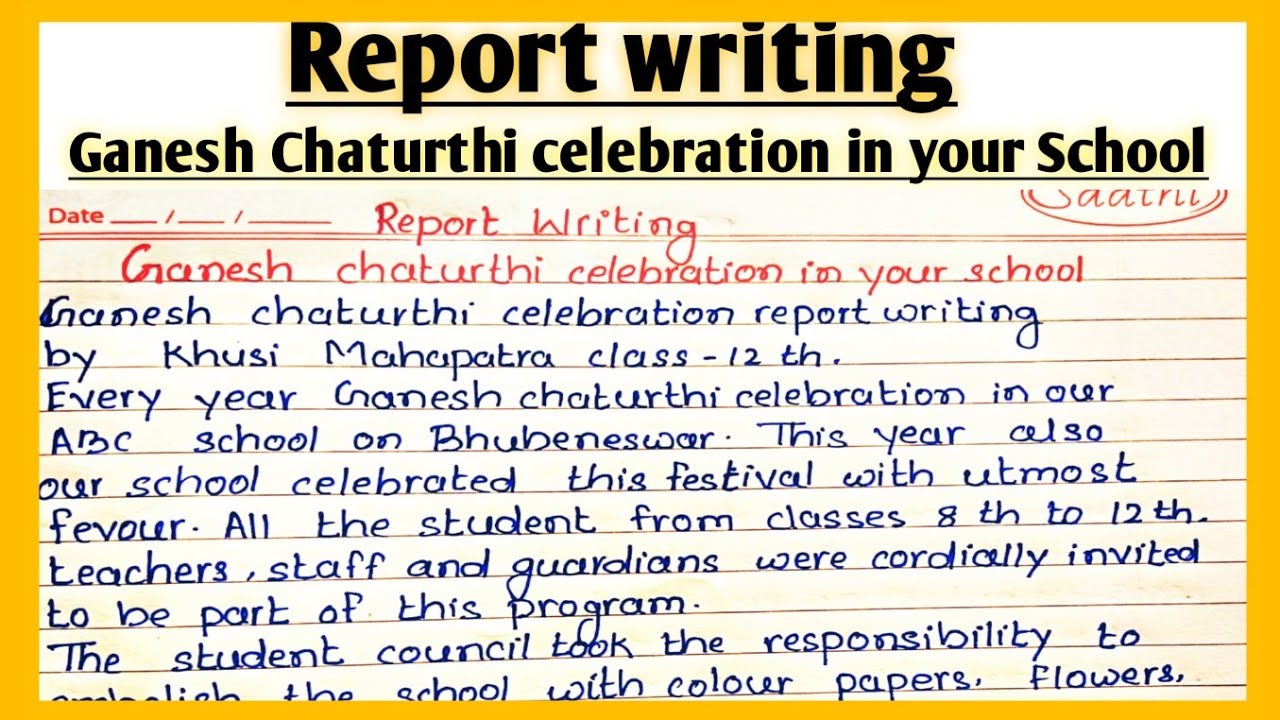 Report writing
Ganesh Chaturthi celebration in your School
Date __ / __ / ____ Report Writing Saathi
Ganesh chaturthi celebration in your school
Ganesh chaturthi celebration report writing
by Khusi Mahapatra class - 12 th.
Every year Ganesh chaturthi celebration in our
ABC school on Bhubeneswar. This year also
our school celebrated this festival with utmost
fevour. All the student from classes 8 th to 12 th.
teachers, staff and guardians were cordially invited
to be part of this program.
The student council took the responsibility to
the school with colour papers, flowers,